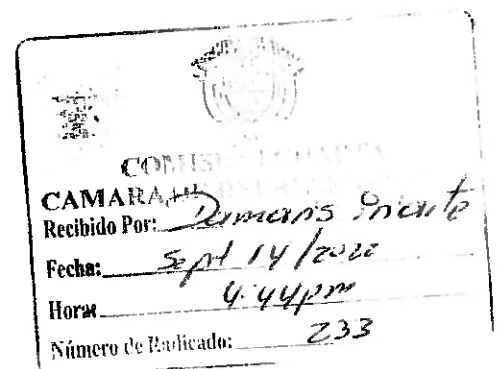 COMISI
CAMARA DE
Recibido Por: Damaris Iriarte
Fecha: Sept 14/2022
Hora: 4:44pm
Número de Radicado: 233